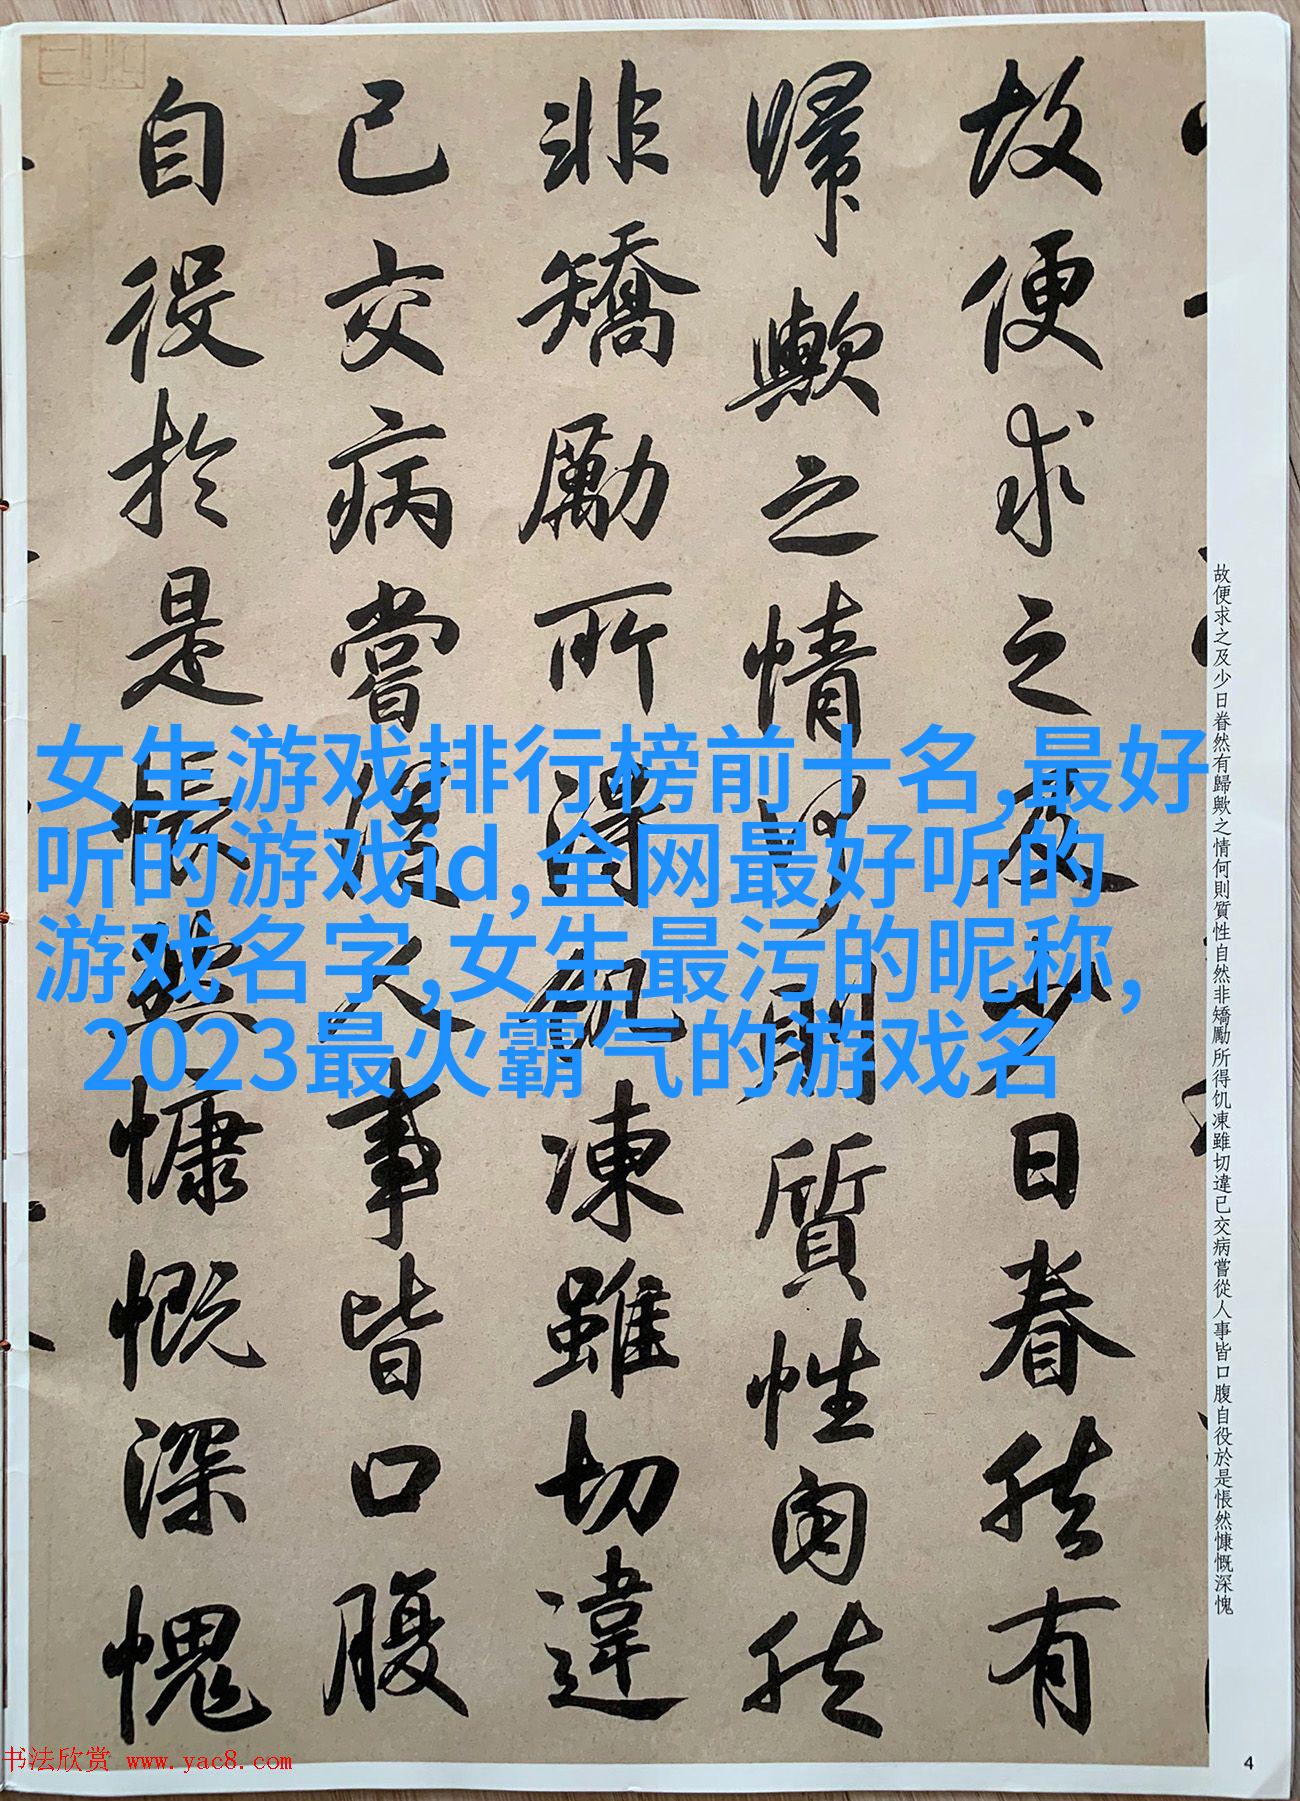 故便求之及少日眷然有
歸歟之情何則質性自然
非矯勵所得飢凍雖切違
已交病嘗從人事皆口腹
自役於是悵然慷慨深愧
故便求之及少日眷然有歸歟之情何則質性自然非矯勵所得飢凍雖切違已交病嘗從人事皆口腹自役於是悵然慷慨深愧
女生游戏排行榜前十名,最好
听的游戏id,全网最好听的
游戏名字,女生最污的昵称,
2023最火霸气的游戏名
书法欣赏 www.yac8.com
4